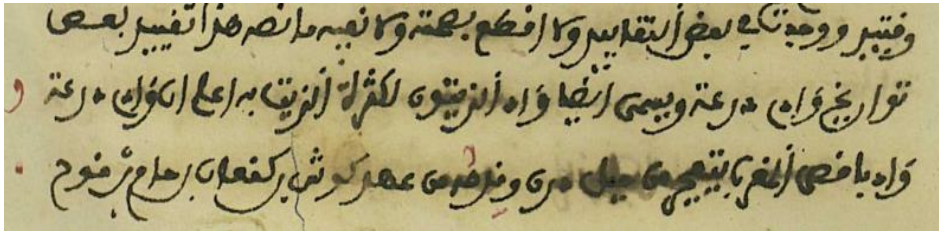 ووجدت في بعض التقاييد ولا اقطع بصحته ولا نفيه ما نصه هذا تقييد بعض
تواريخ واد درعة ويسمى أيضا واد الزيتون لكثرة الزيت به اعلم ان واد درعة
واد باقصى المغرب يتفجر من جبل درن من عهد كوش بن كنعان بن حام بن نوح